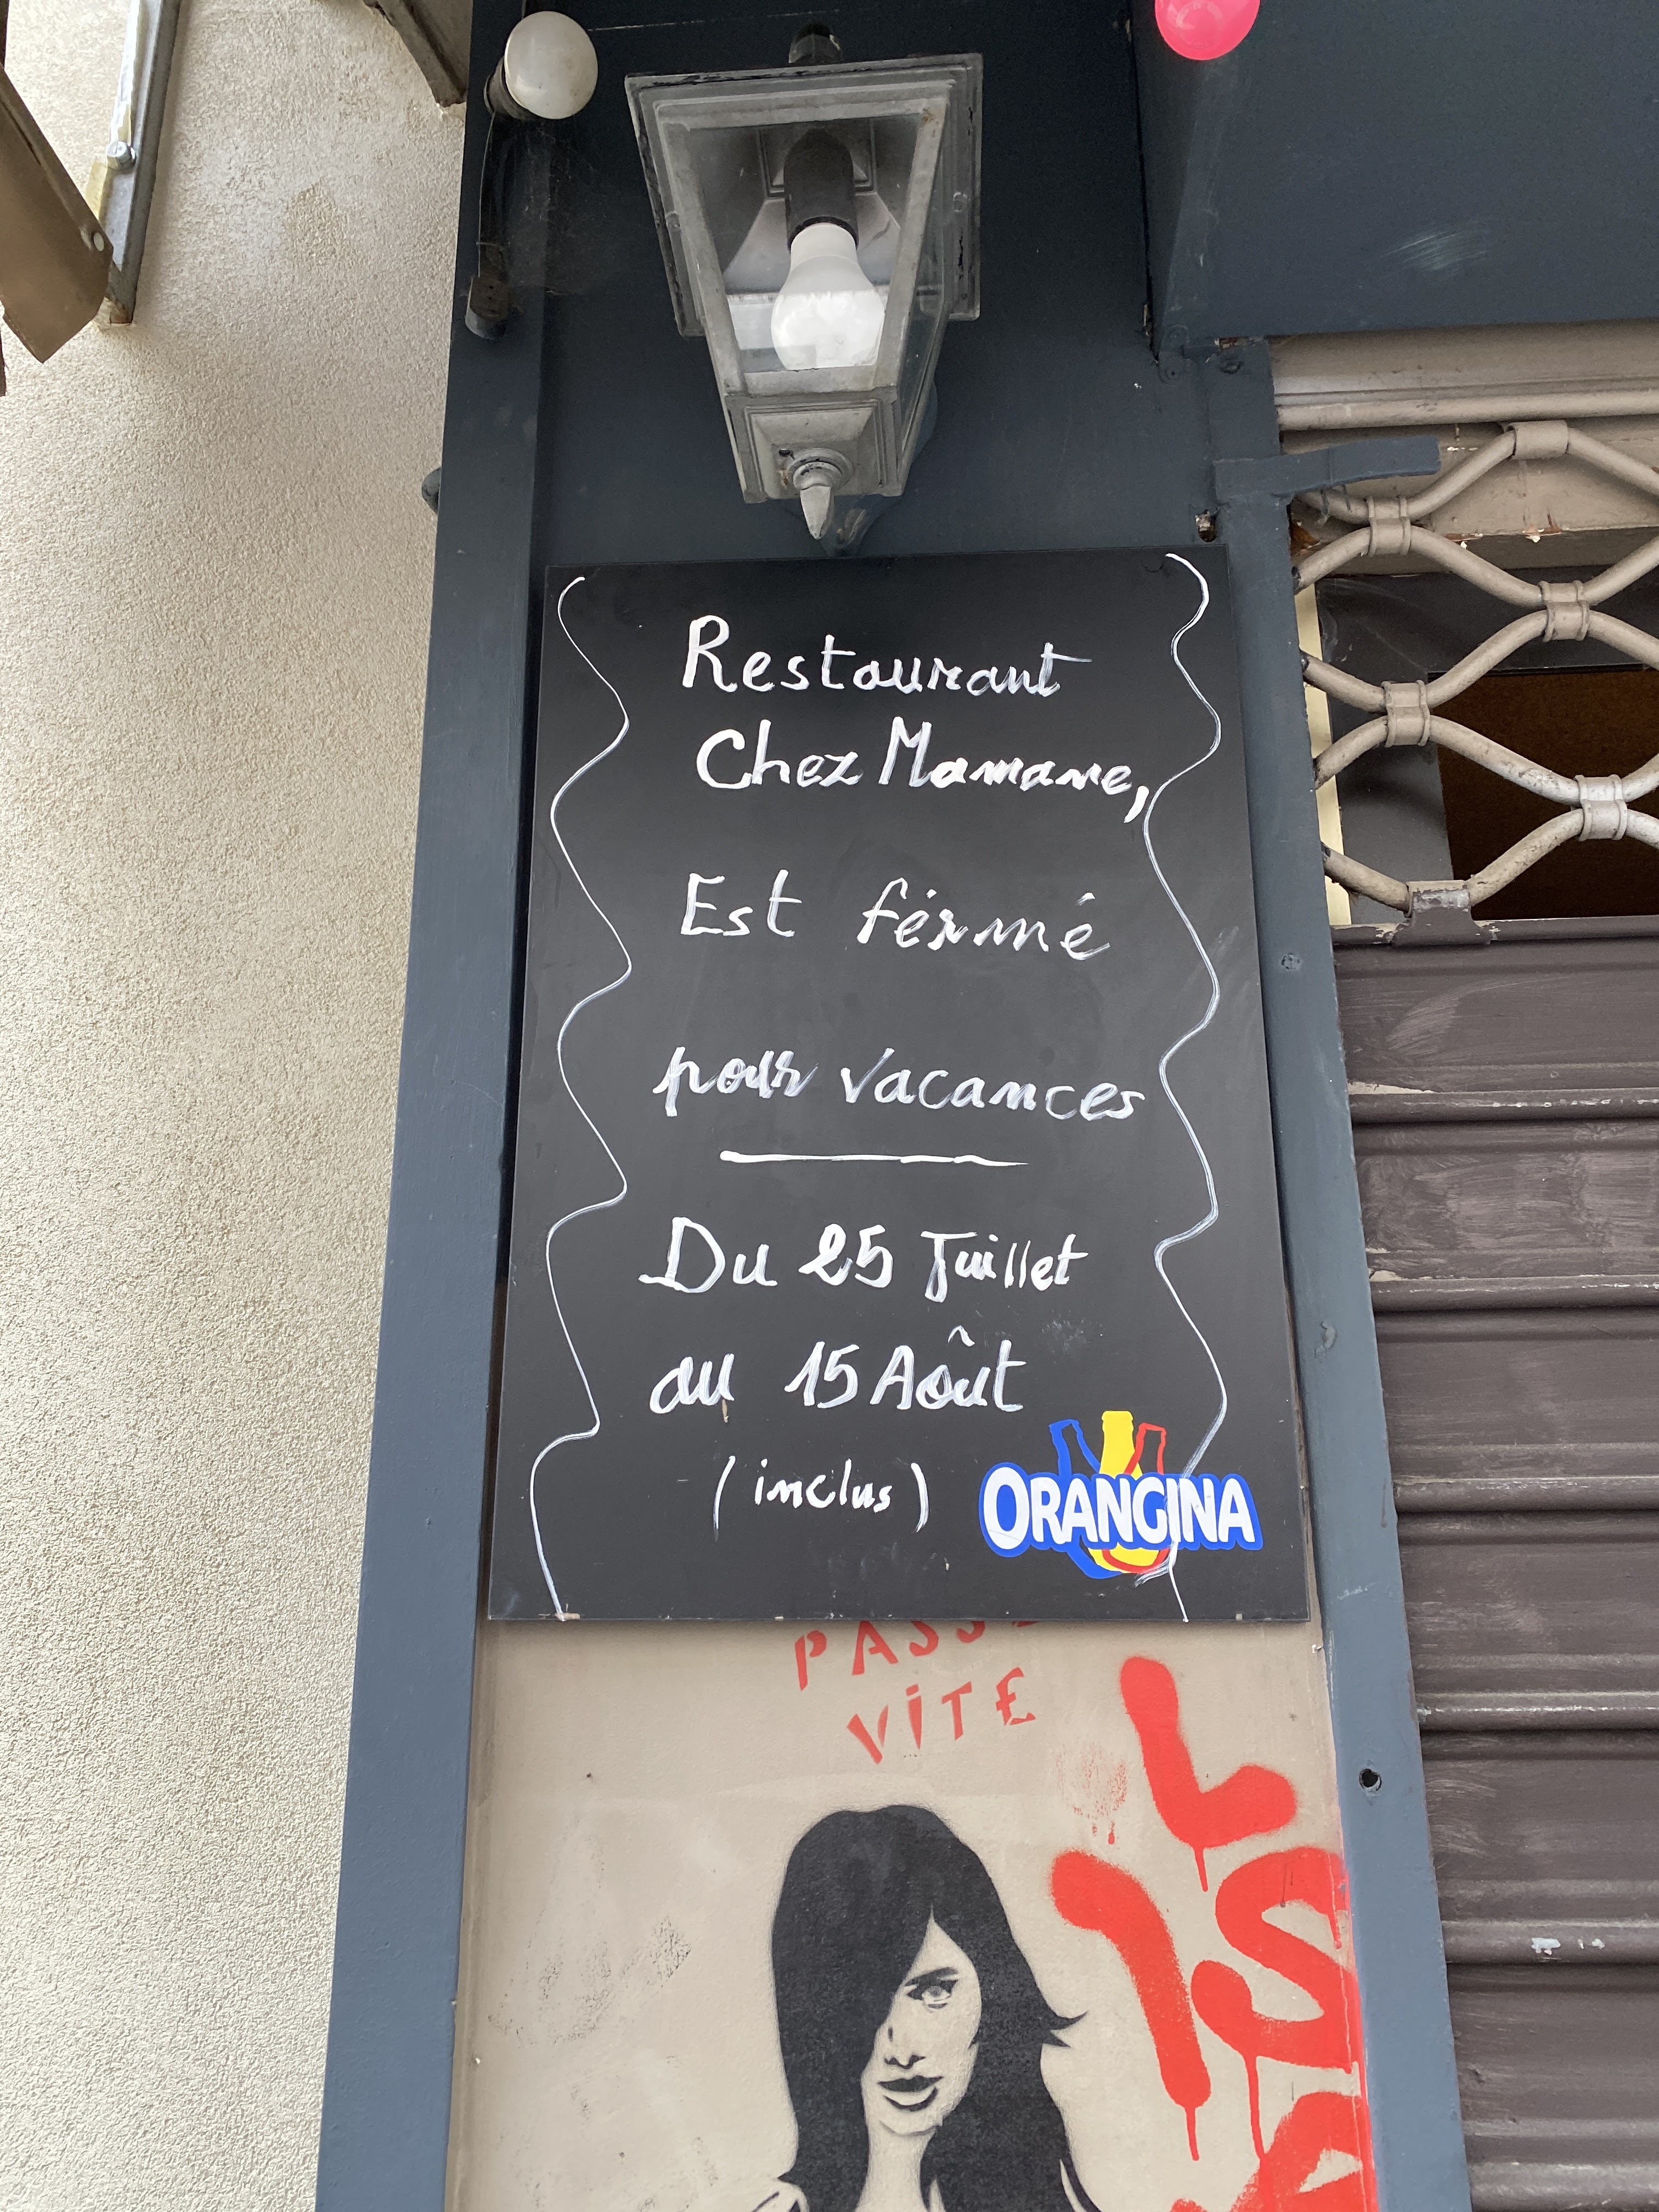 Restaurant
Chez Mamane,
Est férmé
pour vacances
Du 25 Juillet
au 15 Août
(inclus)
ORANGINA
VITE